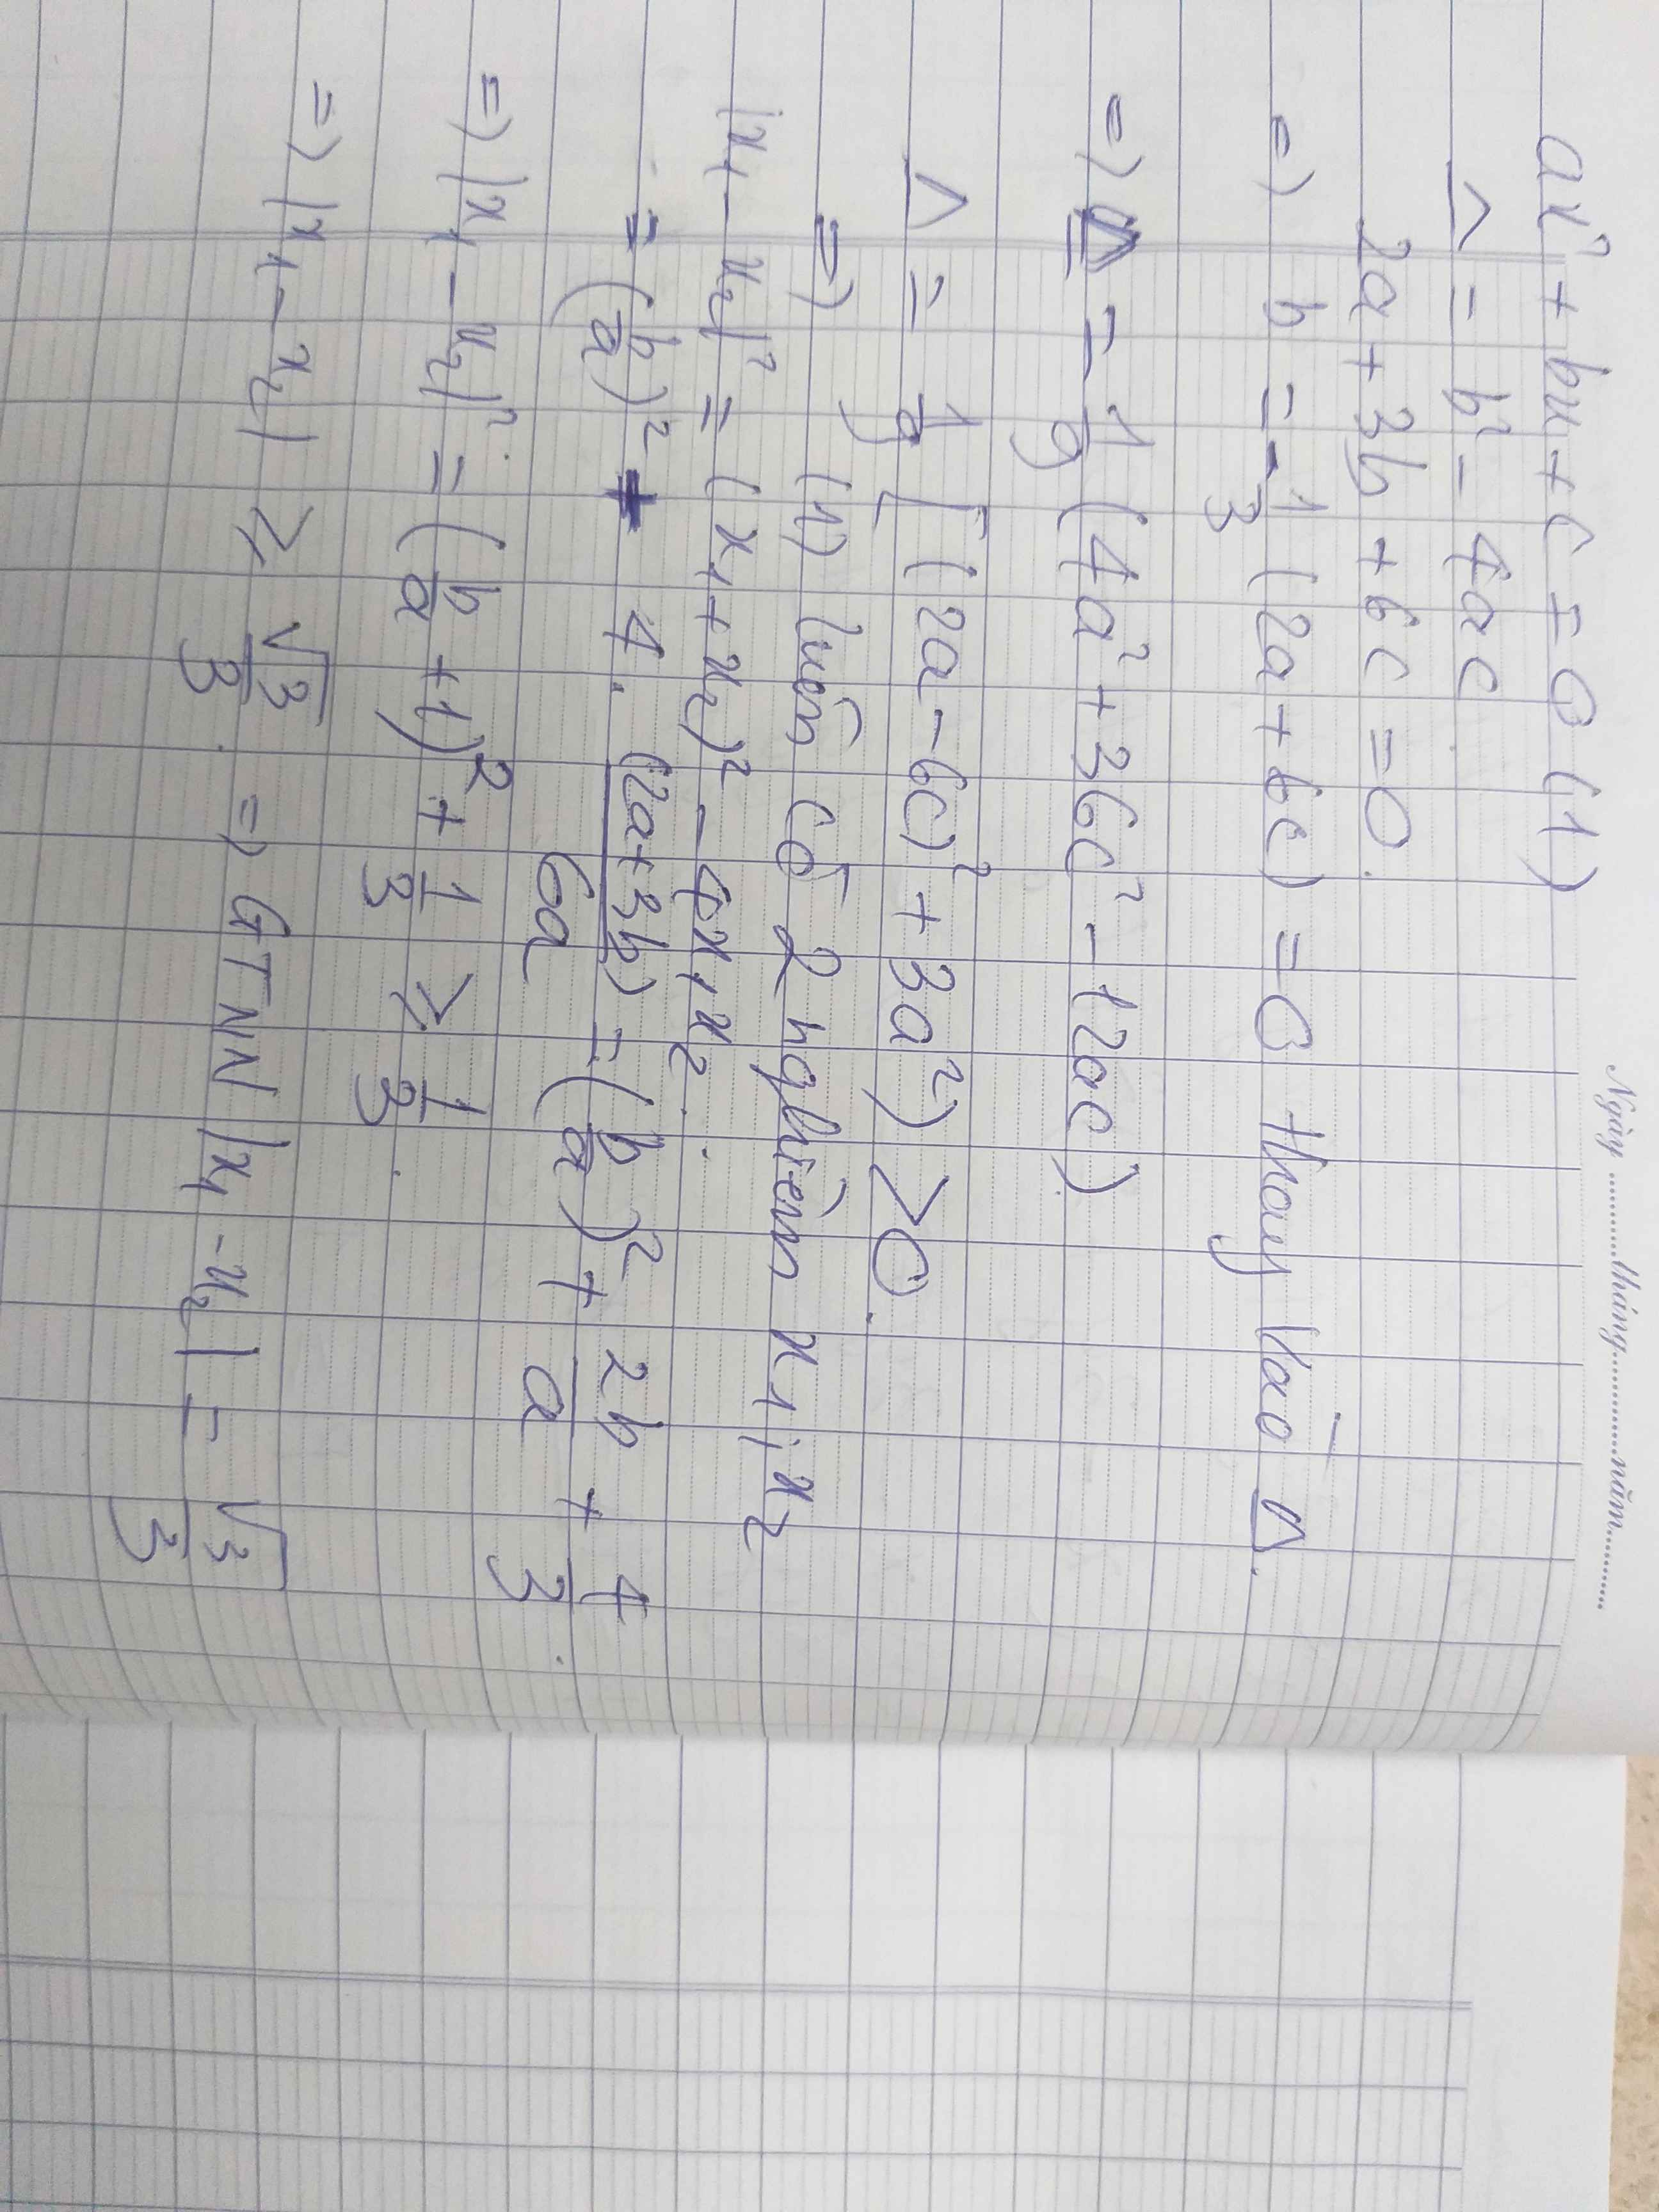 Ngày ..........tháng..............năm...........
ax² + bx + c = 0 (1)
Δ = b² - 4ac
2a + 3b + 6c = 0.
=> b = -1/3 (2a + 6c) = 0 thay vào Δ.
=> Δ = 1/9 (4a² + 36c² - 12ac)
Δ = 1/9 [(2a - 6c)² + 3a²) > 0.
=> (1) luôn có 2 nghiệm x1; x2
|x1 - x2|² = (x1 + x2)² - 4x1x2.
= (b/a)² + 4. (2a+3b)/6a = (b/a)² + 2b/a + 4/3.
=> |x1 - x2|² = (b/a + 1)² + 1/3 ≥ 1/3.
=> |x1 - x2| ≥ √3/3. => GTNN |x1 - x2| = √3/3